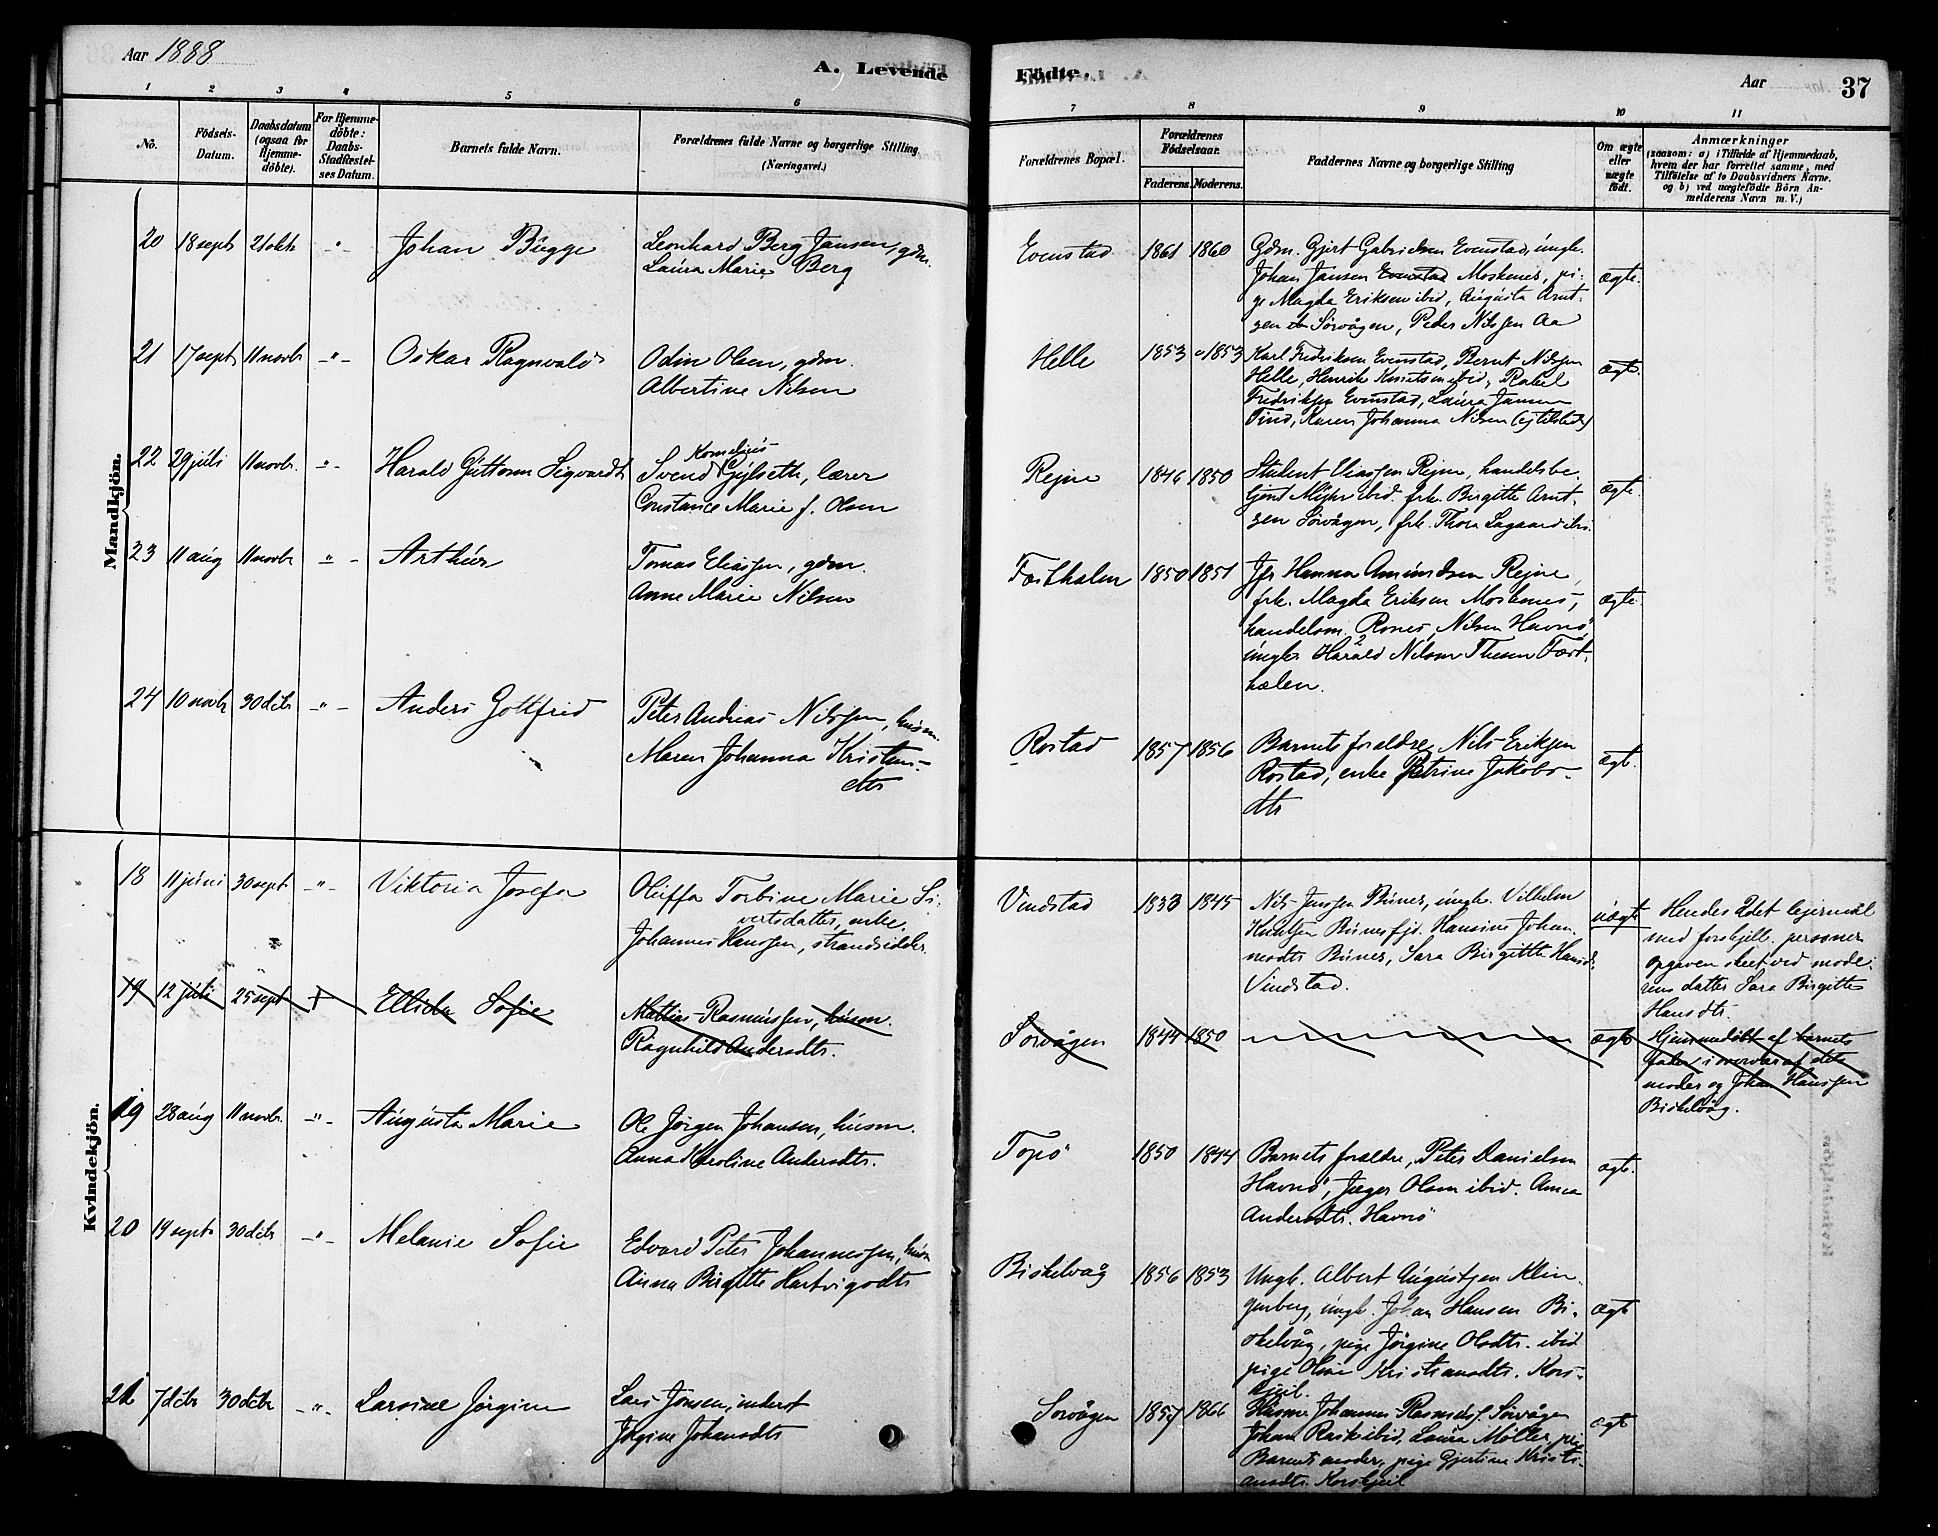 Aar 1888
A. Levende
Födte.
Aar
37
1 2 3 4 5 6 7 8 9 10 11
No.
Födsels-
Datum.
Daabsdatum
(ogsaa for
Hjemme-
döbte).
For Hjemme-
döbte:
Daabs-
Stadfæstel-
ses Datum.
Barnets fulde Navn.
Forældrenes fulde Navne og borgerlige Stilling
(Næringsvei.)
Forældrenes Bopæl.
Forældrenes
Födselsaar.
Faderens. Moderens.
Faddernes Navne og borgerlige Stilling
Om ægte
eller
uægte
födt.
Anmærkninger
(saasom: a) i Tilfælde af Hjemmedaab,
hvem der har forrettet samme, med
Tilföielse af to Daabsvidners Navne.
og b) ved uægtefödte Börn An-
melderens Navn m. V.)
Mandkjön.
20 18 sept 21 okt -"- Johan Bugge
Leonhard Berg Jansen, gdm.
Laura Marie Berg
Evenstad 1861 1860
Gdm. Gjert Gabrielsen Evenstad, ungk.
Johan Jansen Evenstad Moskenes, pi-
ge Magda Eriksen ibid, Augusta Arnt-
zen Sørvågen, Peder Nilssen Aa
ægte.
21 17 sept 11 novbr -"- Oskar Ragnvald
Odin Olsen, gdm.
Albertine Nilsen
Helle 1853 1853
Karl Fredriksen Evenstad, Bernt Nilssen
Helle, Henrik Knutsen ibid, Rakel
Fredriksen Evenstad, Laura Jansen
Tind, Karen Johanna Nilsen (ej tilsted)
ægt.
22 29 juli 11 novbr. -"- Harald Guttorm Sigvardt
Kornelius
Svend Gjylseth, lærer
Constance Marie f. Olsen
Rejne 1846 1850
Student Eliassen Rejne, handelsbe-
tjent ibid. frk. Birgitte Arnt-
zen Sørvågen, frk. Thora Lagaard ibid.
ægte.
23 11 aug 11 novbr -"- Arthur
Tomas Eliassen, gdm.
Anne Marie Nilsen
1850 1851
Jfr Hanna Amundsen Rejne,
frk. Magda Eriksen Moskenes,
handelsm. Nilsen Havnø
ungk. Harald Nilsen
hælen.
ægte.
24 10 novbr 30 dcbr -"- Anders Gottfrid
Peter Andreas Nilssen, husm.
Maren Johanna Kristens-
dtr
Rostad 1857 1856
Barnets foraldre, Nils Eriksen
Rostad, enke Petrine Jakobs-
dtr
ægt.
Kvindekjön.
18 11 juni 30 sept. -"- Viktoria Josefa
Oluffa Torbine Marie Si-
vertsdatter, enke.
Johannes Hanssen, strandsidder.
Vindstad 1833 1845
Nils Jenssen Bunes, ungk. Vilhelm
Knutsen Bunesfjd. Hansine Johan-
nesdtr Bunes, Sara Birgitte Hansd.
Vindstad.
uægt
Hendes 2det lejermål
med forskjell. personer
opgaven skeet ved mode-
rens datter Sara Birgitte
Hansdtr.
19 12 juli 25 sept Ellida Sofie
Mattias Rasmussen, husm.
Ragnhild Andersdtr.
Sørvågen 1844 1850
ægt
Hjemmedøbt af barnets
fader i overvær af dets
moder og Johan Hanssen
Biskelvåg.
19 28 aug 11 novbr. -"- Augusta Marie
Ole Jörgen Johansen, husm.
Anna Karoline Andersdtr.
Topø 1850 1844
Barnets foraldre, Peter Danielsen
Havnø, Jæger Olsen ibid. Anna
Andersdtr. Havnø
ægt.
20 14 sept 30 dcbr -"- Melanie Sofie
Edvard Peter Johannessen, husm
Anna Birgitte Hartvigsdtr
Biskelvåg 1856 1853
Ungk. Albert Augustsen Klin-
genberg, ungk. Johan Hansen Bi-
skelvåg, pige Jörgine Olsdtr. ibid
pige Oline Kristiansdtr. Kors-
kjeil.
ægt
21 7 dcbr 30 dcbr -"- Larsine Jørgine
Lars Jonsen, inderst
Jørgine Johansdtr
Sørvågen 1857 1866
Husm. Johannes Rasmuss. Sørvågen
Johan ibid, Laura Møller, pige
Barnets moder, pige Gjertine Kristi-
ansdtr. Korskjeil
ægt